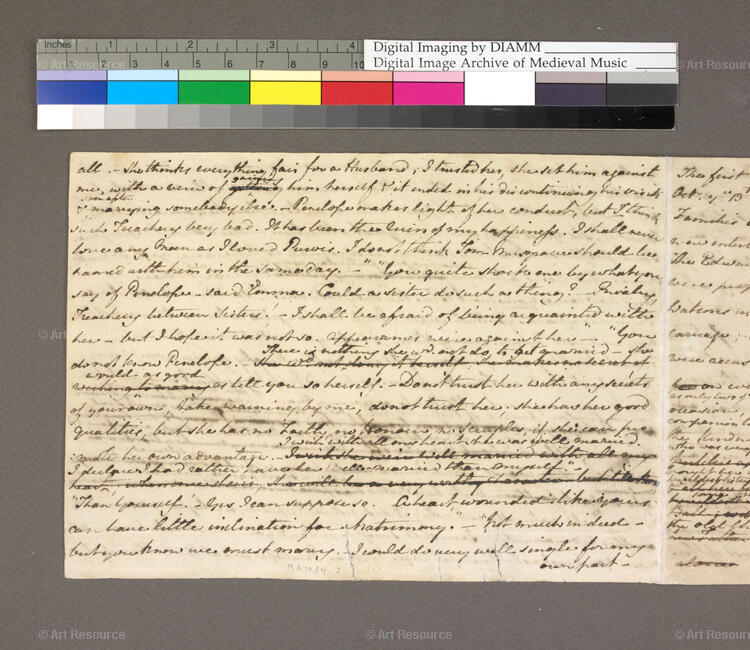 Inches 1 2 3 4
1 2 3 4 5 6 7 8 9 10
Digital Imaging by DIAMM
Digital Image Archive of Medieval Music
© Art Resource
all. - She thinks everything fair for a Husband; I trusted her, she set him against
gaining
me, with a veiw of him herself, & it ended in his discontinuing his visits
soon after
& marrying somebody else. - Penelope makes light of her conduct, but I think
such Treachery very bad. It has been the ruin of my happiness. I shall never
love any Man as I loved Purvis. I do not think Tom Musgrave should be
named with him in the same day. - " "You quite shock me by what you
say of Penelope - said Emma. Could a sister do such a thing? - Rivalry,
Treachery between Sisters! - I shall be afraid of being acquainted with
her - but I hope it was not so. Appearances were against her" - "You
There is nothing she wd. not do to get married - she
do not know Penelope. - She wd. not deny it herself. She makes no secret of
would as good
wishing to marry as tell you so herself. - Do not trust her with any secrets
of your own, take warning by me, do not trust her; she has her good
qualities, but she has no Faith, no Honour, no Scruples, if she can pro
I wish with all my heart she was well married.
-mote her own advantage. - I wish she were well married with all my
I declare I had rather have her well-married than myself." -
heart,
"Than Yourself! - Yes I can suppose so. A heart wounded like yours
can have little inclination for Matrimony." - "Not much indeed -
but you know we must marry. - I could do very well single for my
own part -
MA 1034.2
The first
Oct. 13
Families
The Edwards
were peop
carriage
were accus
occasion,
the old